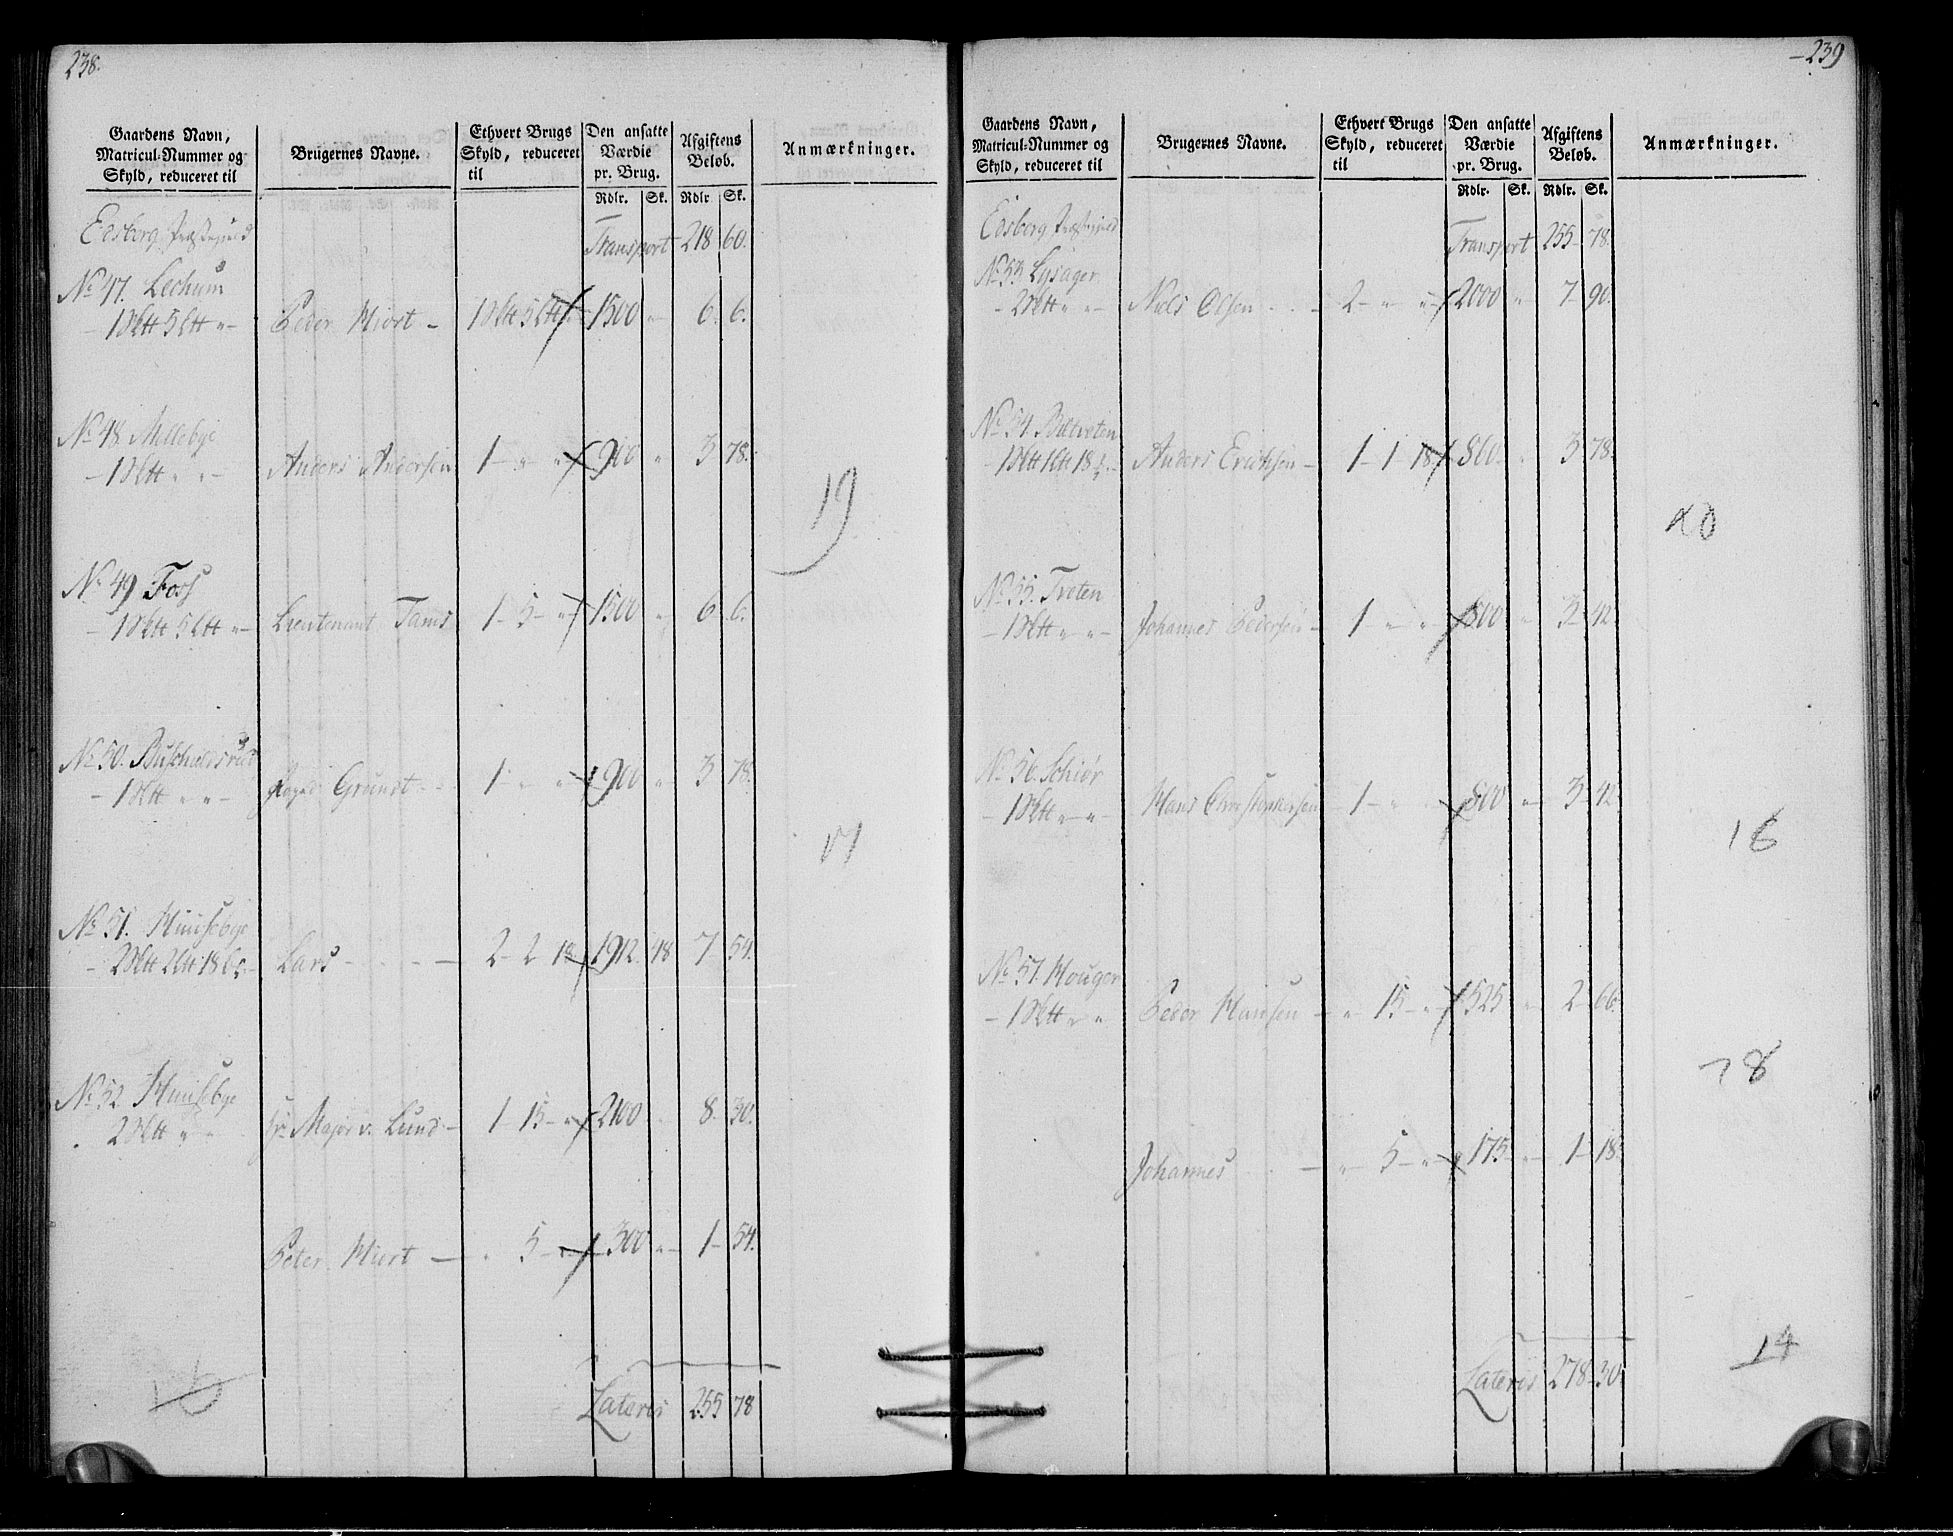 238.
Gaardens Navn, Matricul-Nummer og Skyld, reduceret til
Brugernes Navne.
Ethvert Brugs Skyld, reduceret til
Den ansatte Værdie pr. Brug.
Afgiftens Beløb.
Anmærkninger.
Rdlr. Sk. Rdlr. Sk.
Edsberg Præstegield Transport 218 60.
No 47. Lechum
- 1 Sktt 5 Ltt " - Peder Hiort - 1 Sktt 5 Ltt 1500 " 6. 6.
No 48. Mellebye
- 1 Sktt " " - Anders Andersen 1 - " " 900 " 3 78.
19
No 49 Foss
- 1 Sktt 5 Ltt " - Lieutenant Tams 1 - 5 - " 1500 " 6 6.
No 50. Buschalsrud
- 1 Sktt " " - Grünst - - 1 " " 900 " 3 78.
No 51. Huusebye
- 2 Sktt 2 Ltt 18 - Lars - - - - 2 - 2 18. 1912. 48 7 54.
No 52 Huusebye
2 Sktt " " Hr Major v. Lund - 1 - 15 - " 2100 8. 30.
Peter Hiort - " 5 - " 300 " 1 - 54.
Lateris 255 78
- 239
Gaardens Navn, Matricul-Nummer og Skyld, reduceret til
Brugernes Navne.
Ethvert Brugs Skyld, reduceret til
Den ansatte Værdie pr. Brug.
Afgiftens Beløb.
Anmærkninger.
Rdlr. Sk. Rdlr. Sk.
Edsberg Præstegield Transport 255 - 78.
No 53 Lysager
- 2 Sktt " " - Niels Olsen - - - 2 - " " 2000 " 7 - 90.
No 54. Bætveten
- 1 Sktt 1 Ltt 18 - Anders Erichsen - 1 - 1 18 860. " 3 78.
No 55. Træten
- 1 Sktt " " - Johannes Pedersen - 1 " " 800 " 3 - 42.
No 56. Schiør
- 1 Sktt " " - Hans Christophersen 1 - " " 800 " 3 - 42
16
No 57. Houger
- 1 Sktt " " Peder Hansen - " 15 - " 525 " 2 - 66.
78
Johannes - - - " 5 - " 175 - " 1 - 18.
14
Lateris 278 - 30